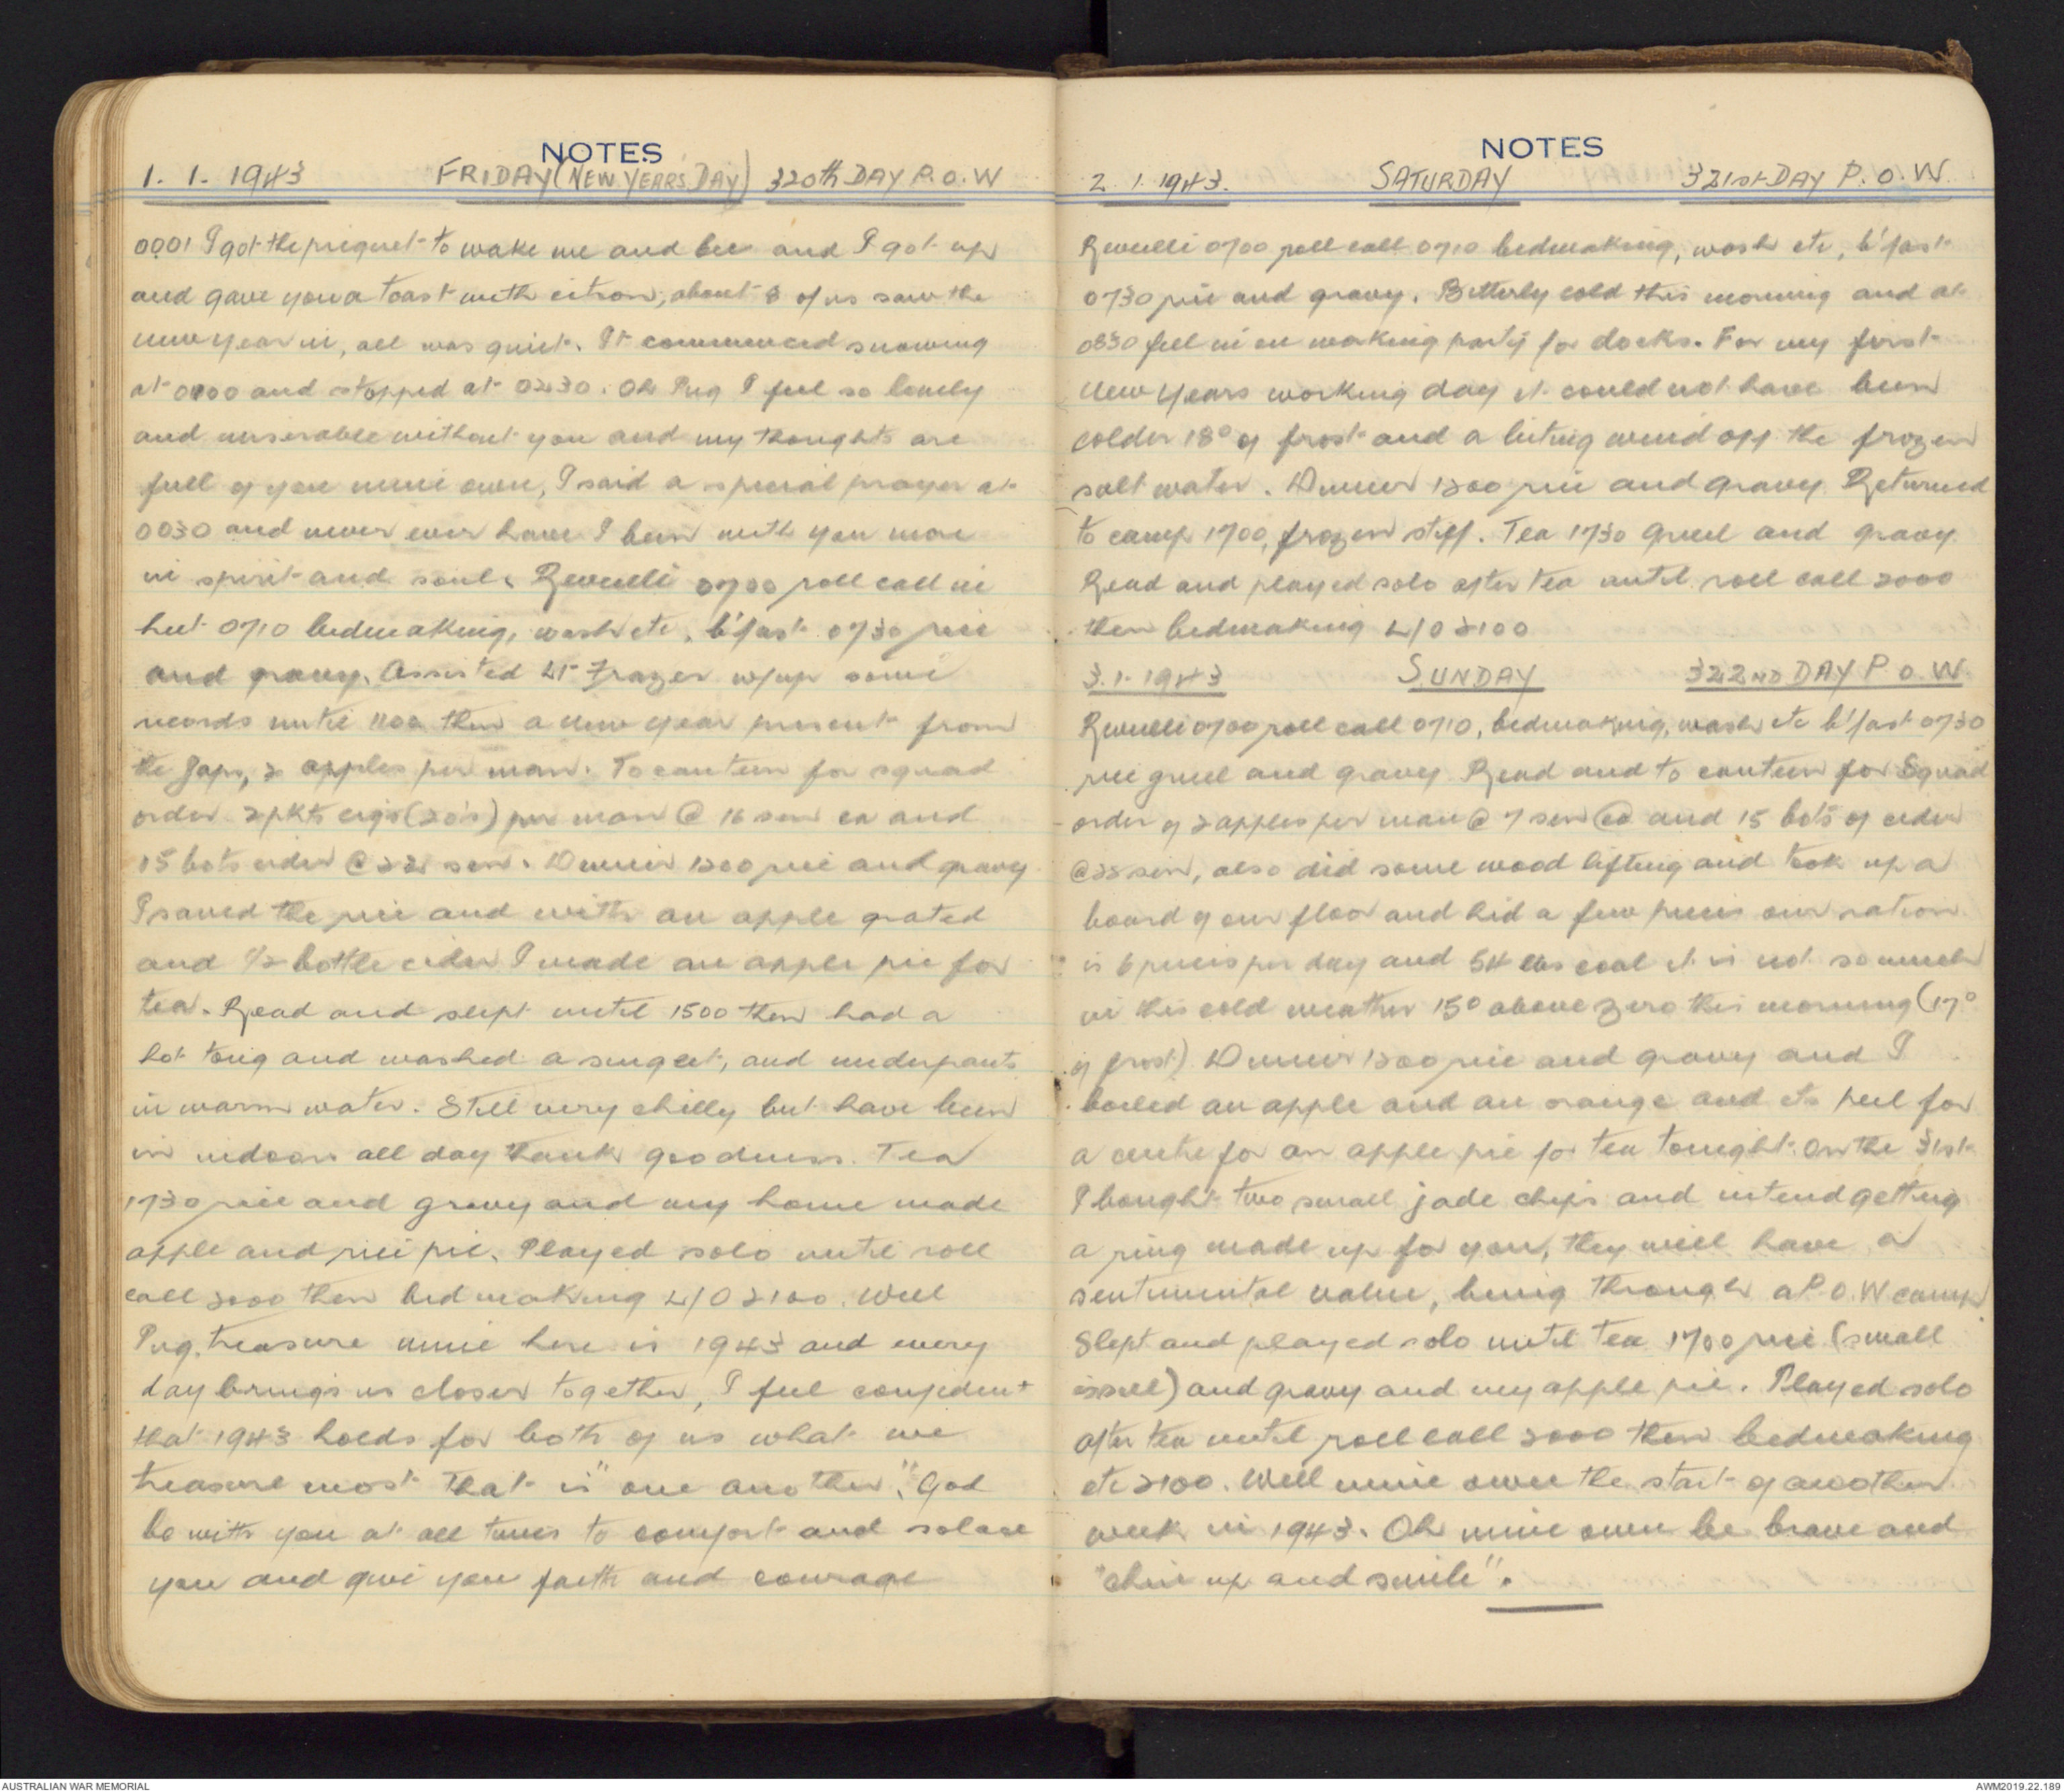 NOTES
1. 1. 1943 FRIDAY (NEW YEARS DAY) 320th DAY P.O.W
0001 I got the piquet to wake me and  and I got up
and gave you a toast with citron, about 8 of us saw the
new year in, all was quiet. It commenced snowing
at 0100 and stopped at 0230. Oh Pug I feel so lonely
and miserable without you and my thoughts are
full of you mine own, I said a special prayer at
0030 and never ever have I been with you more
in spirit and soul. Reveille 0700 roll call in
hut 0710 bedmaking, wash etc, b'fast 0730 rice
and gravy. Assisted Lt Frazer w/up some
records until 1100 then a new year present from
the Japs, 2 apples per man. To canteen for squad
order 2 pkts cigs (20's) per man @ 16 sen ea and
15 bots cider @ sen. Dinner 1200 rice and gravy
I saved the rice and with an apple grated
and 1/2 bottle cider I made an apple pie for
tea. Read and slept until 1500 then had a
hot tong and washed a singlet, and underpants
in warm water. Still very chilly but have been
in indoors all day thank goodness. Tea
1730 rice and gravy and my home made
apple and rice pie. Played solo until roll
call 2000 then bedmaking L/O 2100. Well
Pug treasure mine here is 1943 and every
day brings us closer together, I feel confident
that 1943 holds for both of us what we
treasure most that is "one another". God
be with you at all times to comfort and solace
you and give you faith and courage
NOTES
2. 1. 1943. SATURDAY 321st DAY P.O.W.
Reveilli 0700 roll call 0710 bedmaking, wash etc, b'fast
0730 rice and gravy. Bitterly cold this morning and at
0830 fell in on working party for docks. For my first
New Years working day it could not have been
colder 18° of frost and a biting wind off the frozen
salt water. Dinner 1200 rice and gravy. Returned
to camp 1700, frozen stiff. Tea 1730 gruel and gravy.
Read and played solo after tea until roll call 2000
then bedmaking L/O 2100
3. 1. 1943 SUNDAY 322ND DAY P.O.W.
Reveilli 0700 roll call 0710, bedmaking, wash etc b'fast 0730
rice gruel and gravy. Read and to canteen for Squad
order of 2 apples per man @ 7 sen ea and 15 bots of cider
@ 25 sen, also did some wood lifting and took up a
board of our floor and hid a few pieces our ration
is 6 pieces per day and 54 lbs coal it is not so much
in this cold weather 15° above zero this morning (17°
of frost) Dinner 1200 rice and gravy and I
boiled an apple and an orange and its peel for
a centre for an apple pie for tea tonight. On the 31st
I bought two small jade chips and intend getting
a ring made up for you, they will have a
sentimental value, being through a P.O.W camp
Slept and played solo until tea 1700 rice (small
issue) and gravy and my apple pie. Played solo
after tea until roll call 2000 then bedmaking
etc 2100. Well mine own the start of another
week in 1943. Oh mine own be brave and
"chin up and smile".
AUSTRALIAN WAR MEMORIAL
AWM2019.22.189